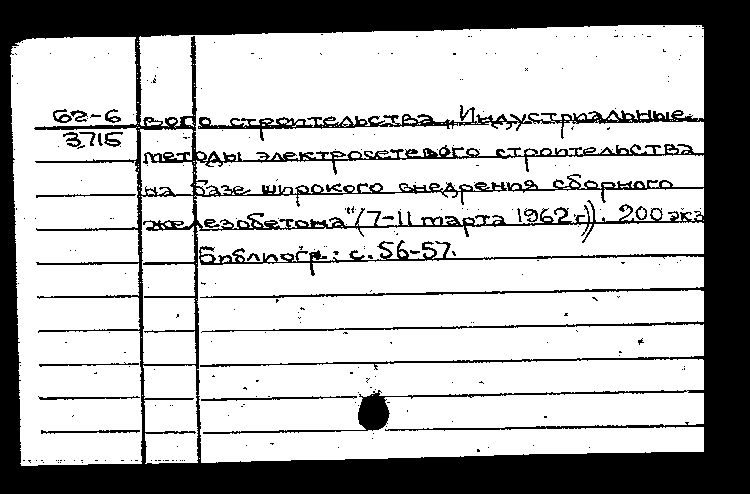 62-6 вого строительства „Индустриальные
3715 методы электросетевого строительства
на базе широкого внедрения сборного
железобетона" (7-11 марта 1962 г)). 200 экз
Библиогр.: с. 56-57.